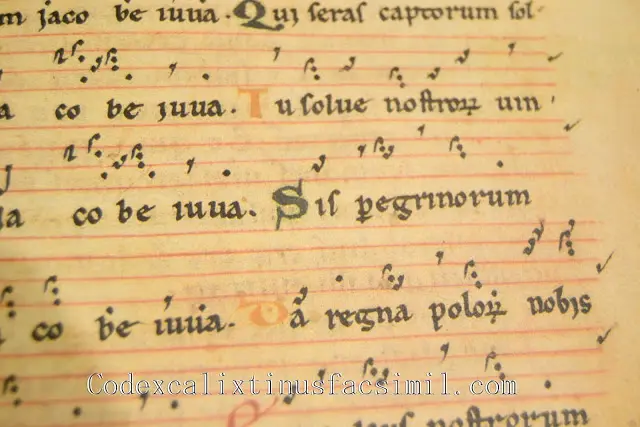 m jaco be iuua. Qui seras captorum sol-
a co be iuua. Tu solue nostroꝝ uin
ia co be iuua. Sis peregrinorum
co be iuua. Da regna poloꝝ nobis
Codexcalixtinusfacsimil.com
nostrorum